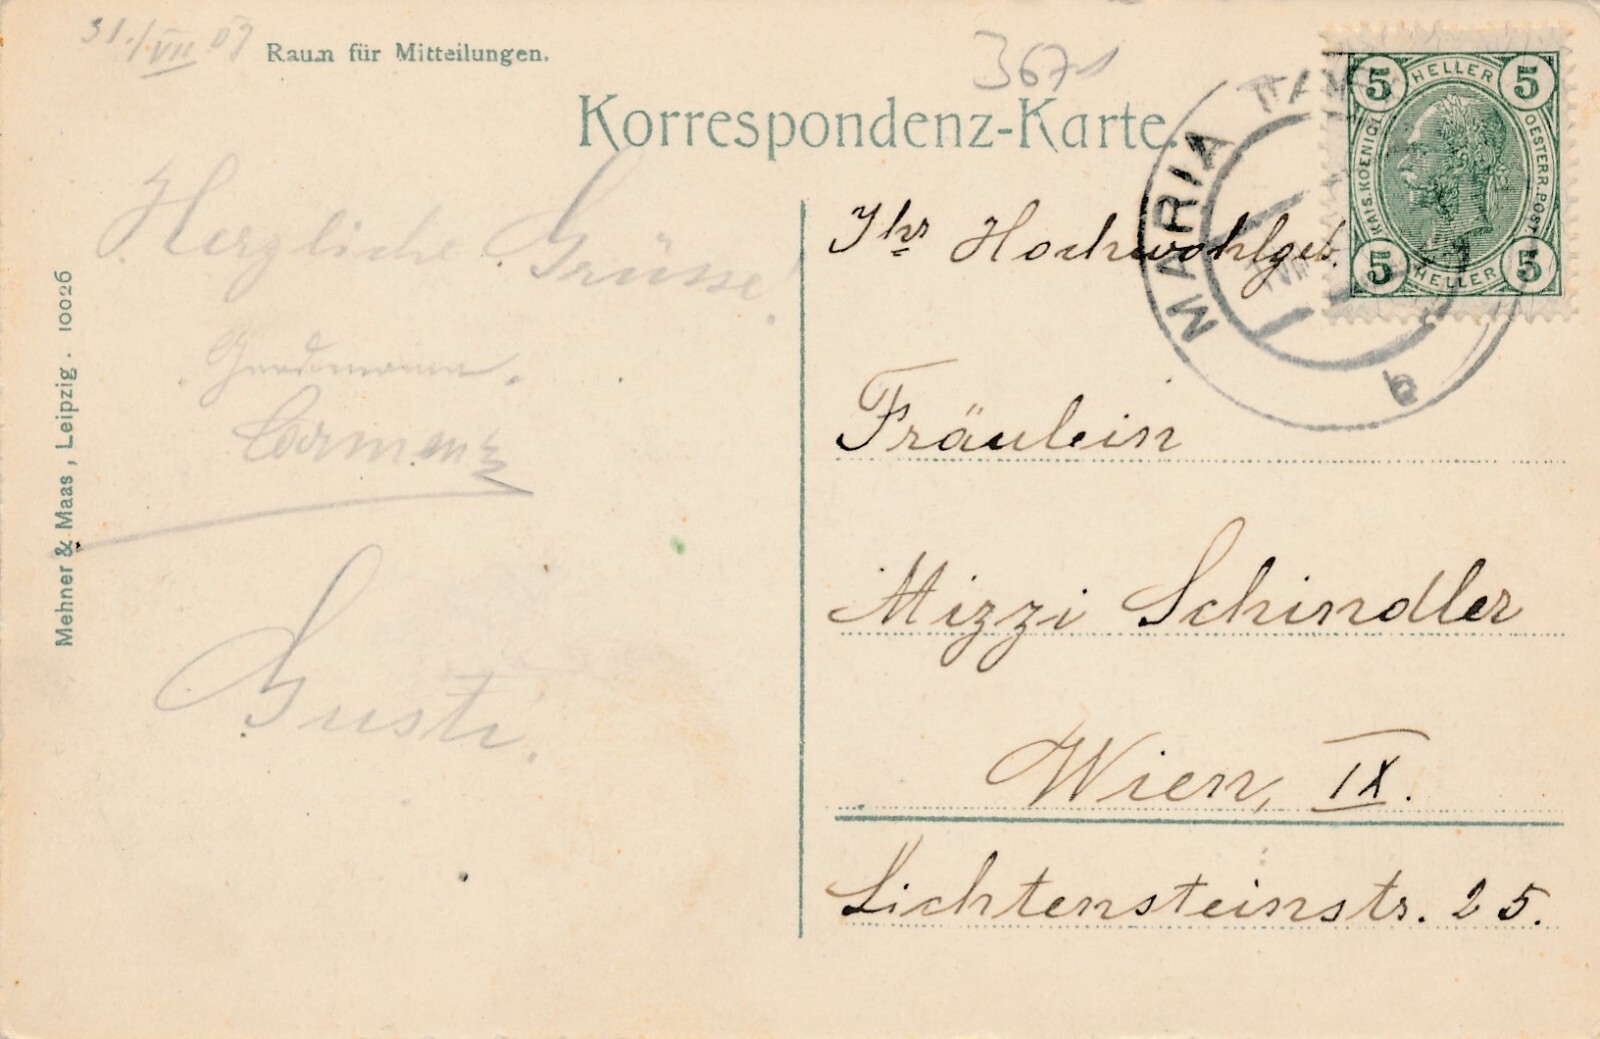 31./VII 07
Raum für Mitteilungen.
3671
Korrespondenz-Karte.
Herzliche Grüsse!
Gusti.
Mehner & Maas, Leipzig. 10026
MARIA
b
5 HELLER 5
KAIS. KOENIGL. OESTERR. POST.
5 HELLER 5
Ihr Hochwohlgeb.
Fräulein
Mizzi Schindler
Wien, IX.
Lichtensteinstr. 25.